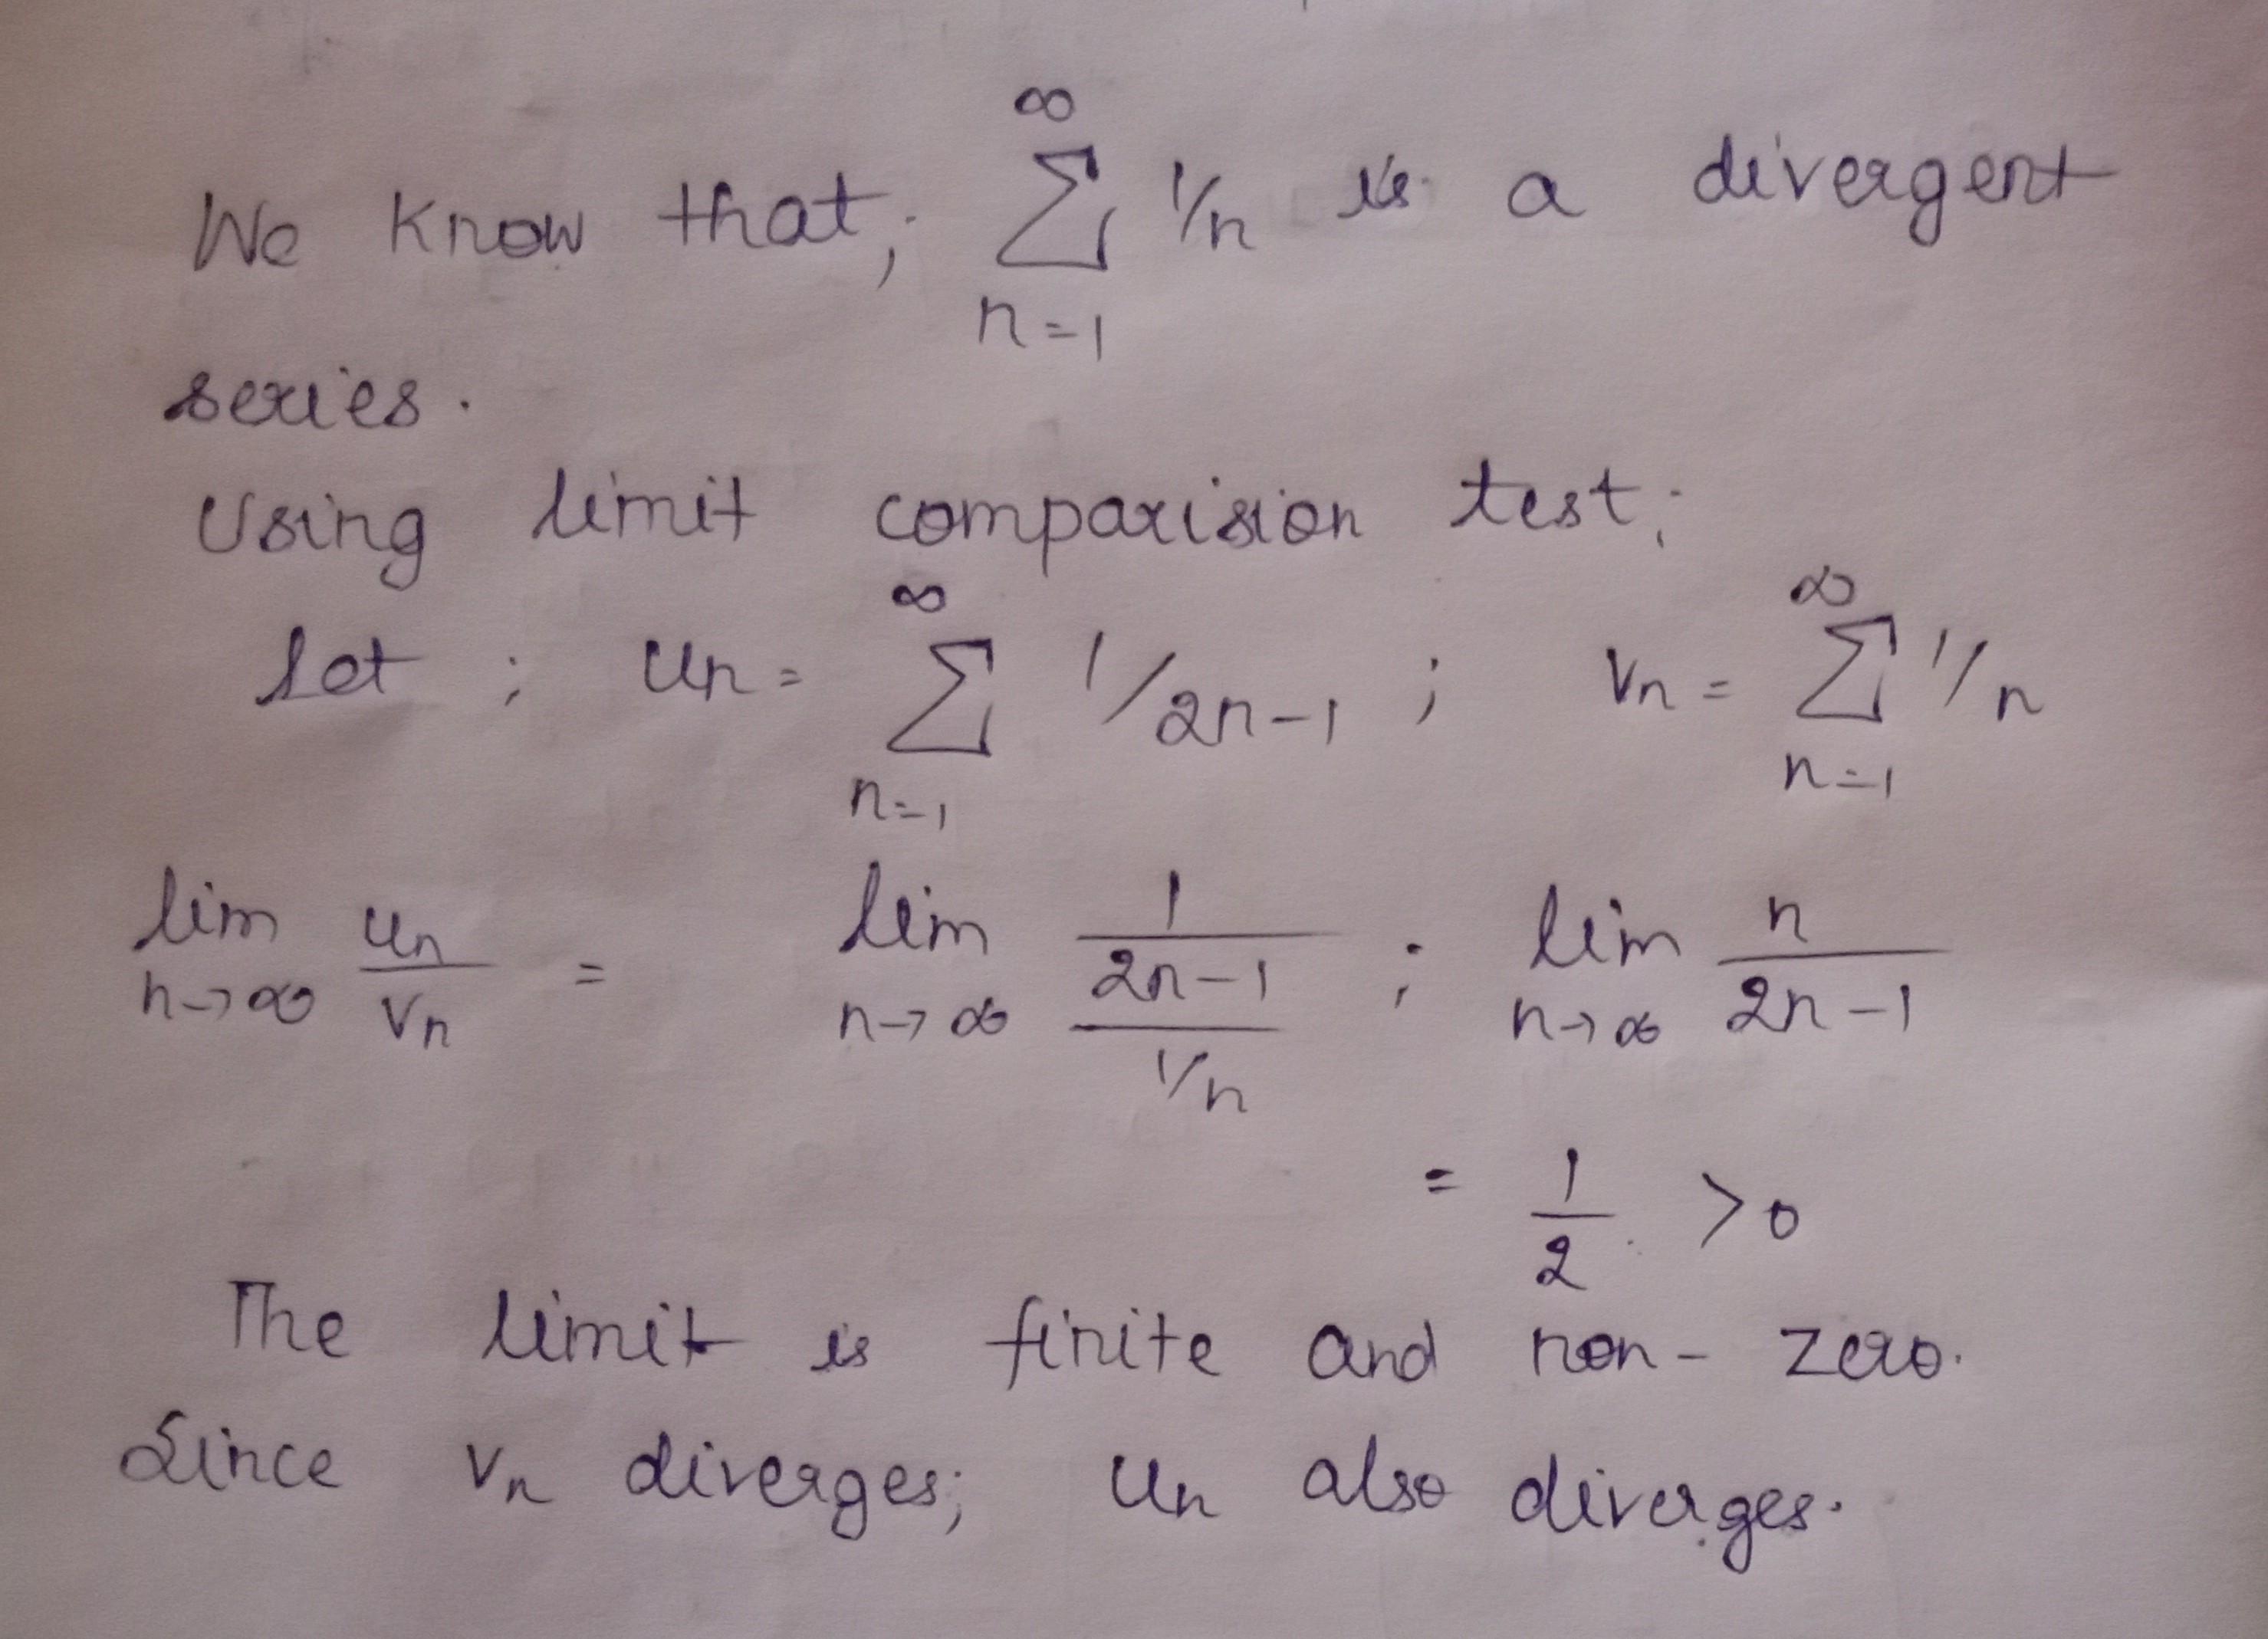 We know that; ∞∑n=1 1/n is a divergent
series.
Using limit comparision test;
Let ; un = ∞∑n=1 1/2n-1 ; vn = ∞∑n=1 1/n
lim n→∞ un/vn = lim n→∞ 1/2n-1 / 1/n ; lim n→∞ n/2n-1
= 1/2 >0
The limit is finite and non-zero.
Since vn diverges; un also diverges.